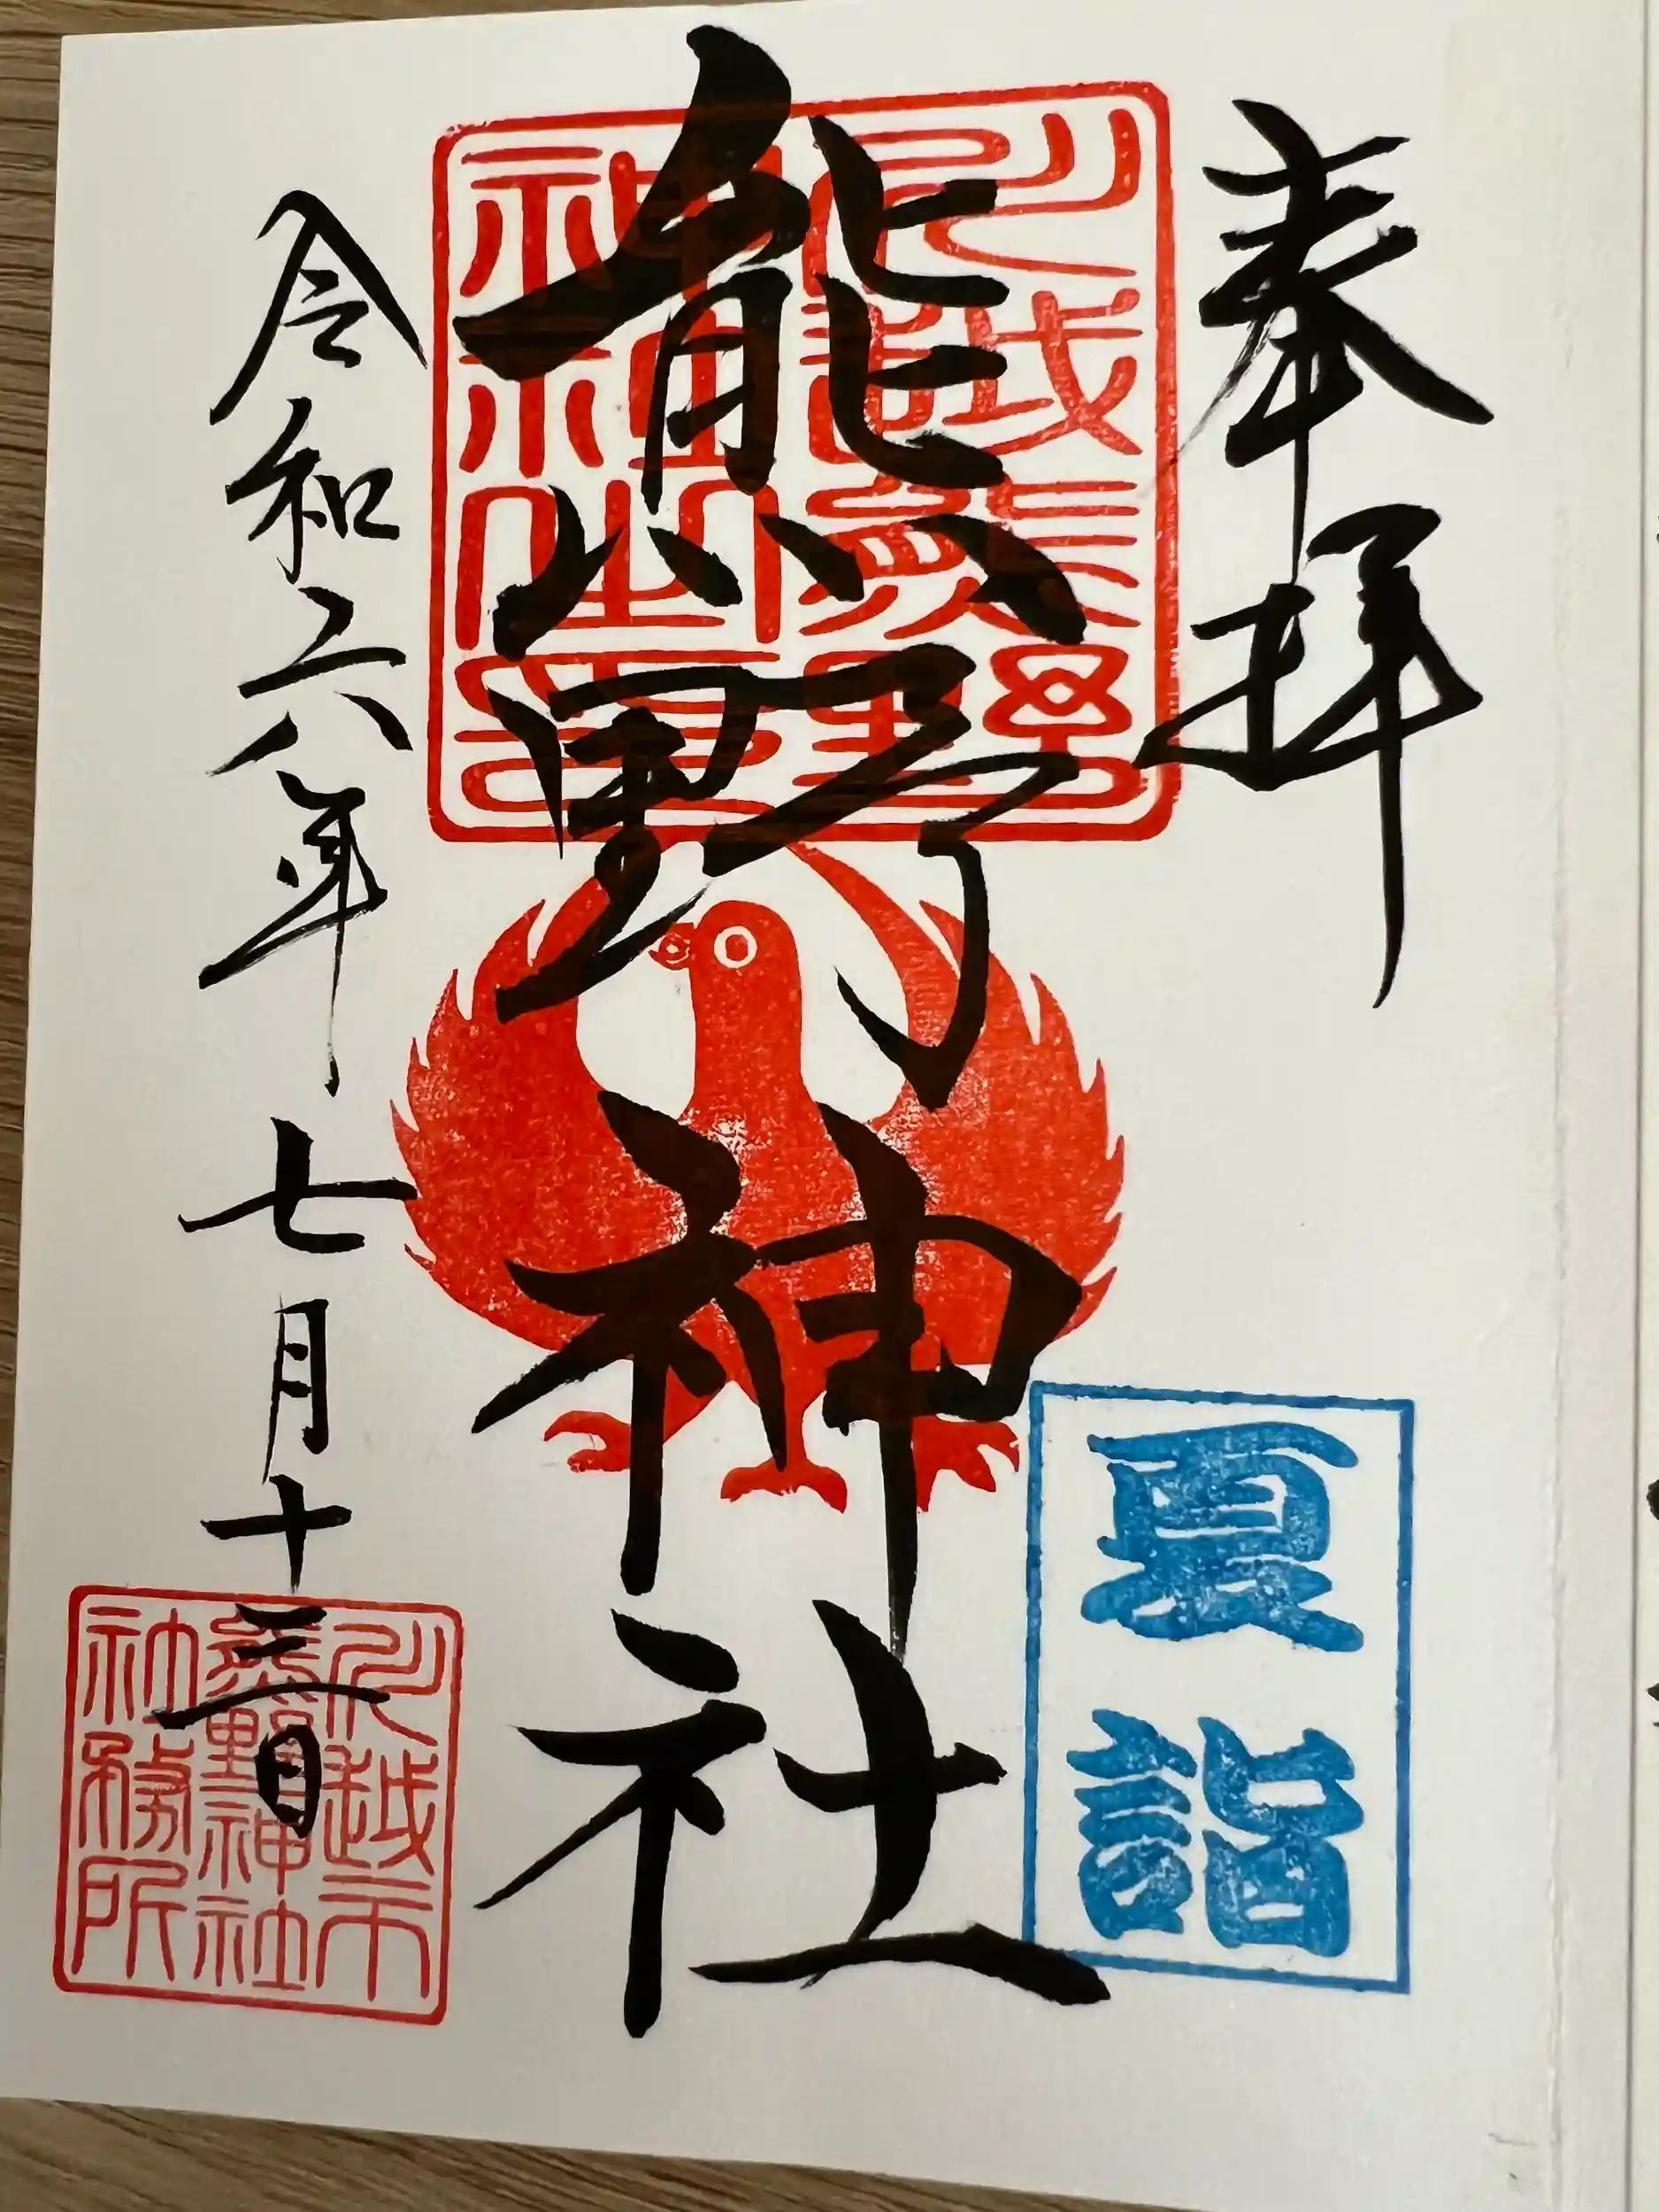 奉拝
夏詣
熊野神社
令和六年七月十三日
川越市
熊野神社
社務所